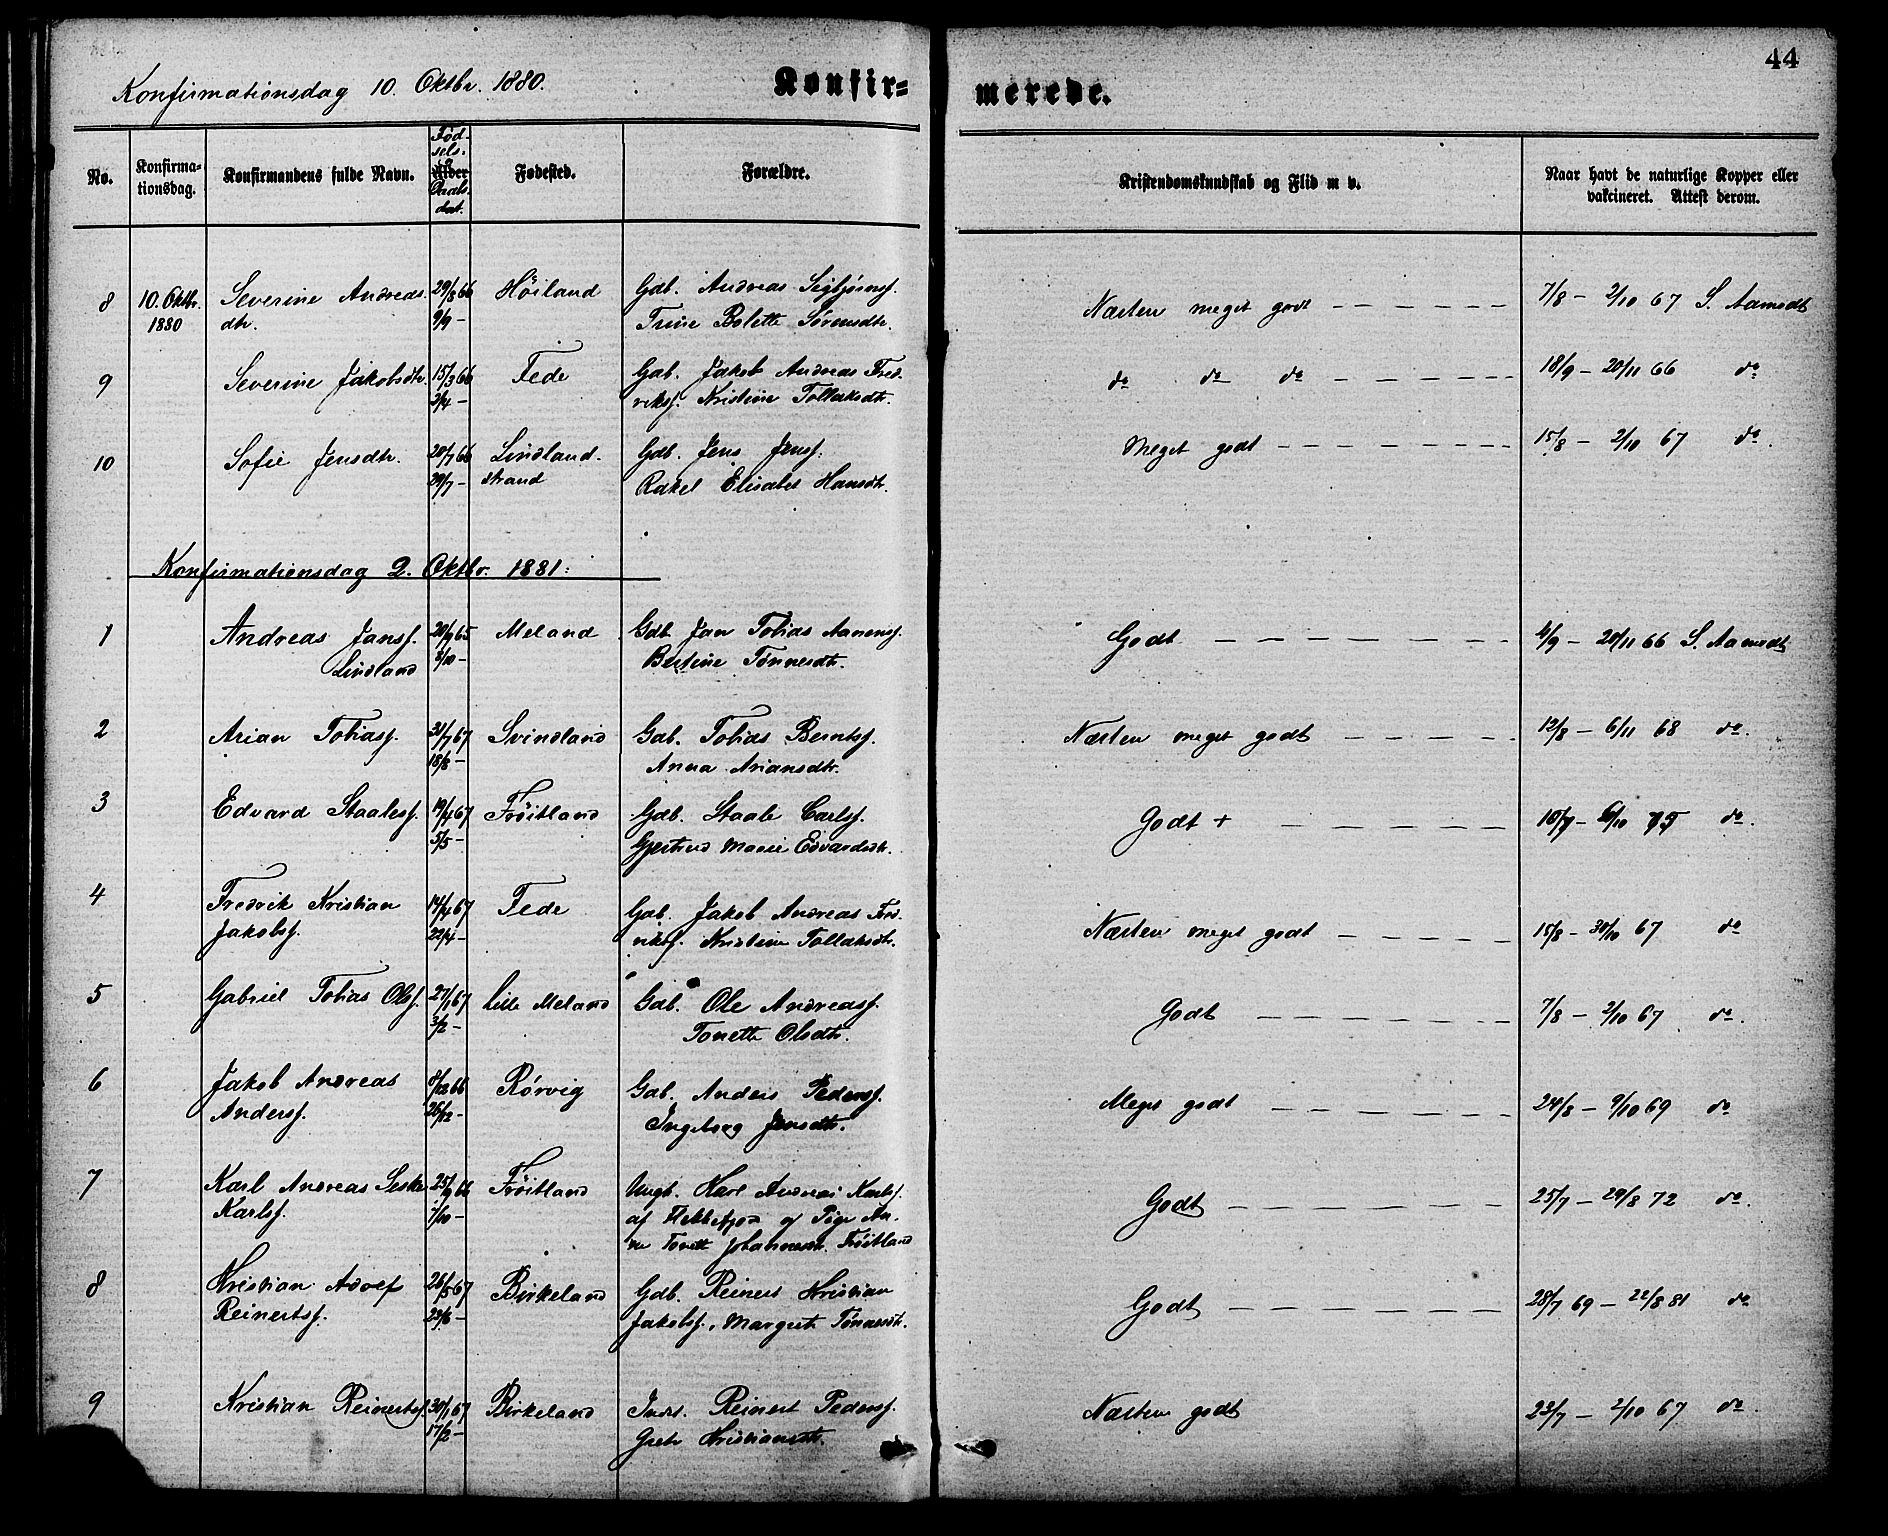 44
Konfirmationsdag 10. Oktbr. 1880. Konfir- merede.
No. Konfirma-tionsdag. Konfirmandens fulde Navn. Fød-sels- & Daabs-dat. Fødested. Forældre. Kristendomskundskab og Flid m v. Naar havt de naturlige Kopper eller vakcineret. Attest derom.
8 10. Oktbr. Severine Andreas. 29/8 66 Høiland Gdb. Andreas Sigbjørnsf. Næsten meget godt 7/8 - 2/10 67 S. Aamodt
1880 dtr. 9/9 - Trine Bolette Sørensdtr.
9 Severine Jakobsdtr. 15/3 66 Fede Gdb. Jakob Andreas Fred- do do do 18/9 - 20/11 66 do
2/4 - riksf. Kristine Tollaksdtr.
10 Sofie Jensdtr. 20/7 66 Lindland- Gdb. Jens Jensf. Meget godt 15/8 - 2/10 67 do.
29/7 - strand Rakel Elisabet Hansdtr.
Konfirmationsdag 2. Oktbr. 1881:
1 Andreas Jansf. 20/9 65 Meland Gdb. Jan Tobias Aanensf. Godt 4/9 - 20/11 66 S. Aamodt
Lindland /10 - Bertine Tønnesdtr.
2 Arian Tobiasf. 31/7 67 Svindland Gdb. Tobias Berntsf. Næsten meget godt 12/8 - 6/11 68 do.
18/8 - Anna Ariansdtr.
3 Edvard Staalesf. 19/4 67 Frøitland Gdb. Staale Carlsf. Godt + /10 75 do.
5/5 - Gjertrud Marie Edvardsdtr.
4 Fredrik Kristian 14/4 67 Fede Gdb. Jakob Andreas Fred- Næsten meget godt 15/8 - 30/10 67 do
Jakobsf. 22/4 - riksf. Kristine Tollaksdtr.
5 Gabriel Tobias Olsf. 27/1 67 Lille Meland Gdb. Ole Andreasf. Godt 7/8 - 2/10 67 do.
3/2 - Tonette Olsdtr.
6 Jakob Andreas 8/12 66 Rørvig Gdb. Anders Pedersf. Meget godt 24/8 - 9/10 69 do
Andersf. 26/12 - Ingeborg Jensdtr.
7 Karl Andreas Seske 25/9 66 Frøitland Ungk. Karl Andreas Karlsf. Godt 25/7 - 29/8 72 do.
Karlsf. 7/10 - af Flekkefjord og Pige Aa-
ne Tonett Johannesdtr. Frøitland
8 Kristian Adolf 26/5 67 Birkeland Gdb. Reinert Kristian Godt 28/7 69 - 22/8 81 do.
Reinertsf. 22/6 - Jakobsf., Margrete Tønnesdtr.
9 Kristian Reinertsf. 30/1 67 Birkeland Indst. Reinert Pedersf. Næsten godt 23/7 - 2/10 67 do.
17/2 - Grete Kristiansdtr.